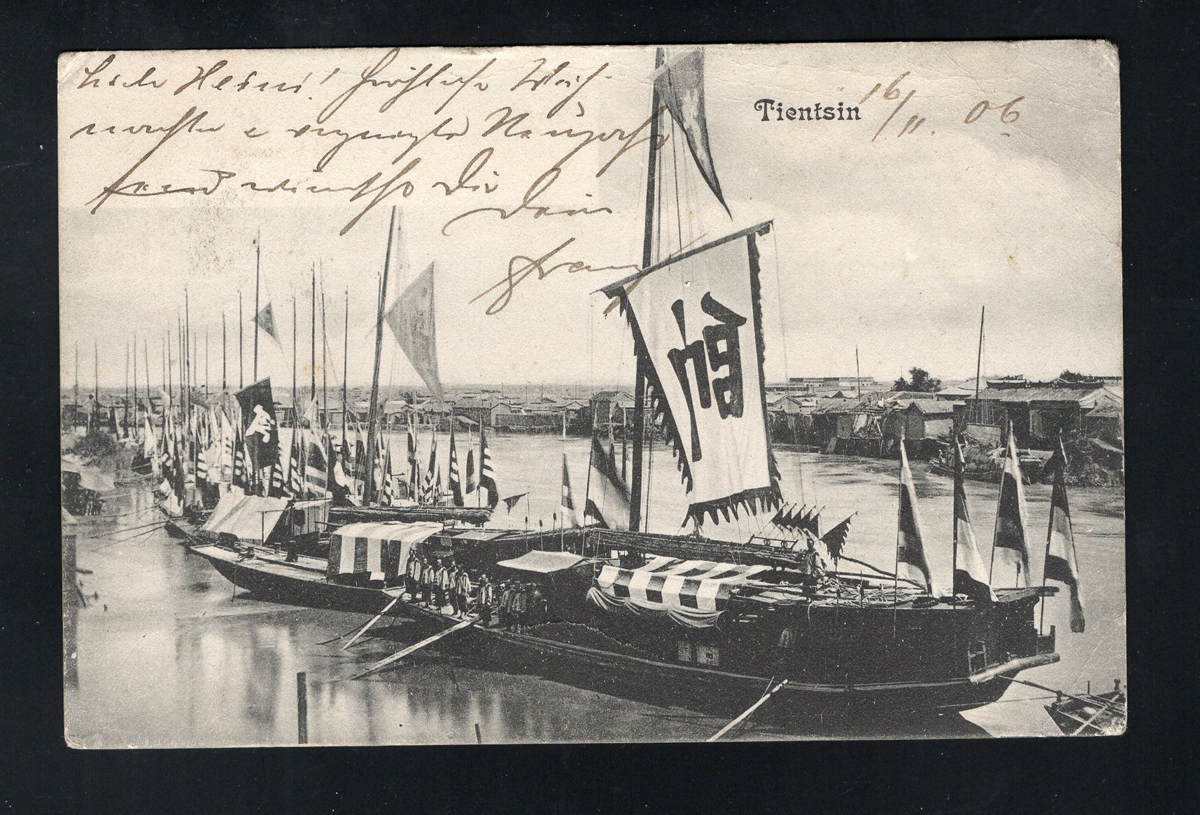 Liebe Heini! Fröhliche Weih-
nachten & vergnügte Neujahr
wünscht Dir
Dein
Franz
Tientsin 16/11. 06
帥